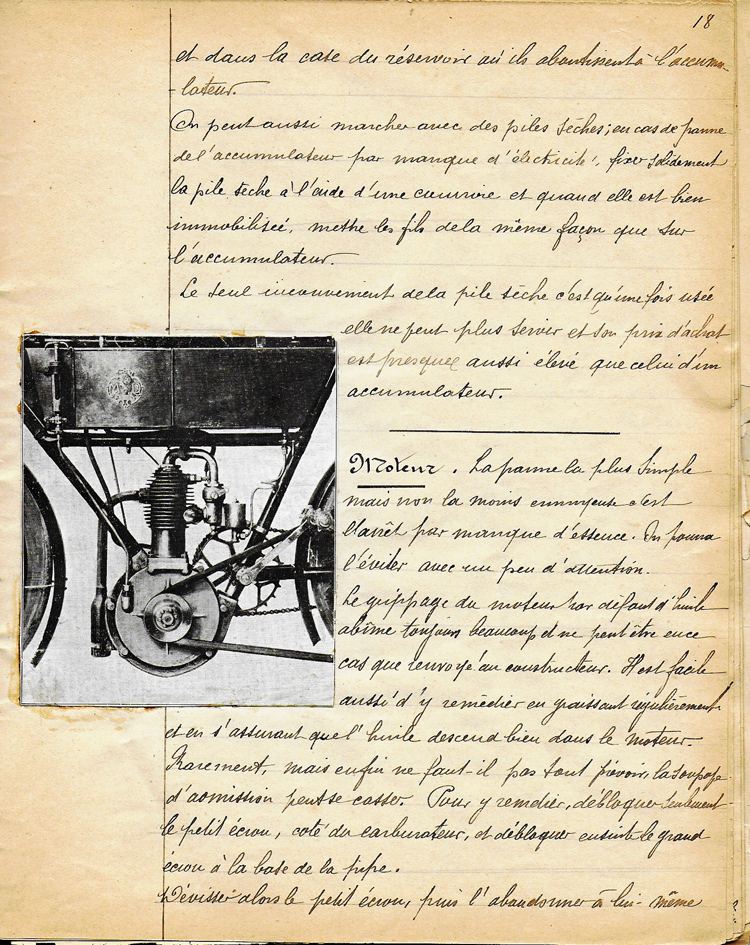 18
et dans la case du réservoir où ils aboutissent à l'accumu-
-lateur.
On peut aussi marcher avec des piles sèches; en cas de panne
de l'accumulateur par manque d'électricité, fixer solidement
la pile sèche à l'aide d'une courroie et quand elle est bien
immobilisée, mettre les fils de la même façon que sur
l'accumulateur.
Le seul inconvenient de la pile sèche c'est qu'une fois usée
elle ne peut plus servir et son prix d'achat
est presque aussi élevé que celui d'un
accumulateur.
Moteur. La panne la plus simple
mais non la moins ennuyeuse c'est
l'arrêt par manque d'essence. On pourra
l'éviter avec un peu d'attention.
Le grippage du moteur par défaut d'huile
abîme toujours beaucoup et ne peut être en ce
cas que renvoyé au constructeur. Il est facile
aussi d'y remédier en graissant régulièrement
et en s'assurant que l'huile descend bien dans le moteur.
Rarement, mais enfin ne faut-il pas tout prévoir, la soupape
d'admission peut se casser. Pour y remdier, débloquer seulement
le petit écrou, coté du carburateur, et débloquer ensuite le grand
écrou à la base de la pipe.
Dévisser alors le petit écrou, puis l'abandonner à lui-même